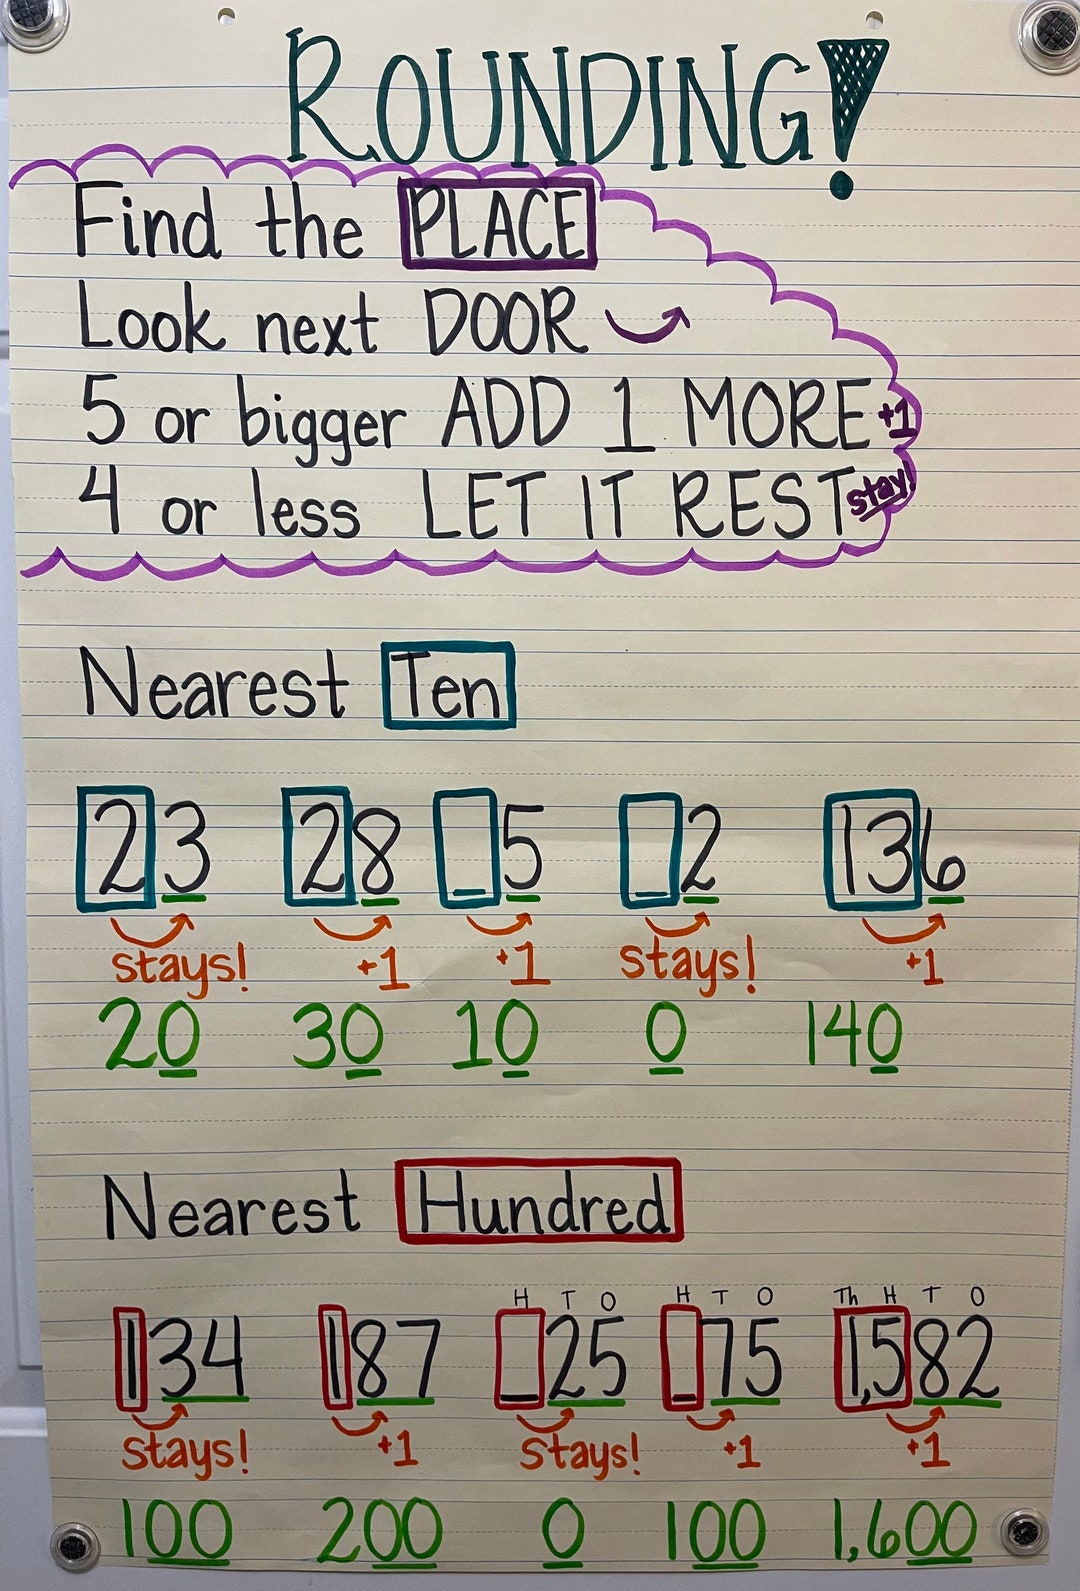 ROUNDING!
Find the PLACE
Look next DOOR
5 or bigger ADD 1 MORE +1
4 or less LET IT REST stay!
Nearest Ten
23 28 _5 _2 136
stays! +1 +1 stays! +1
20 30 10 0 140
Nearest Hundred
H T O H T O Th H T O
134 187 _25 _75 1,582
stays! +1 stays! +1 +1
100 200 0 100 1,600